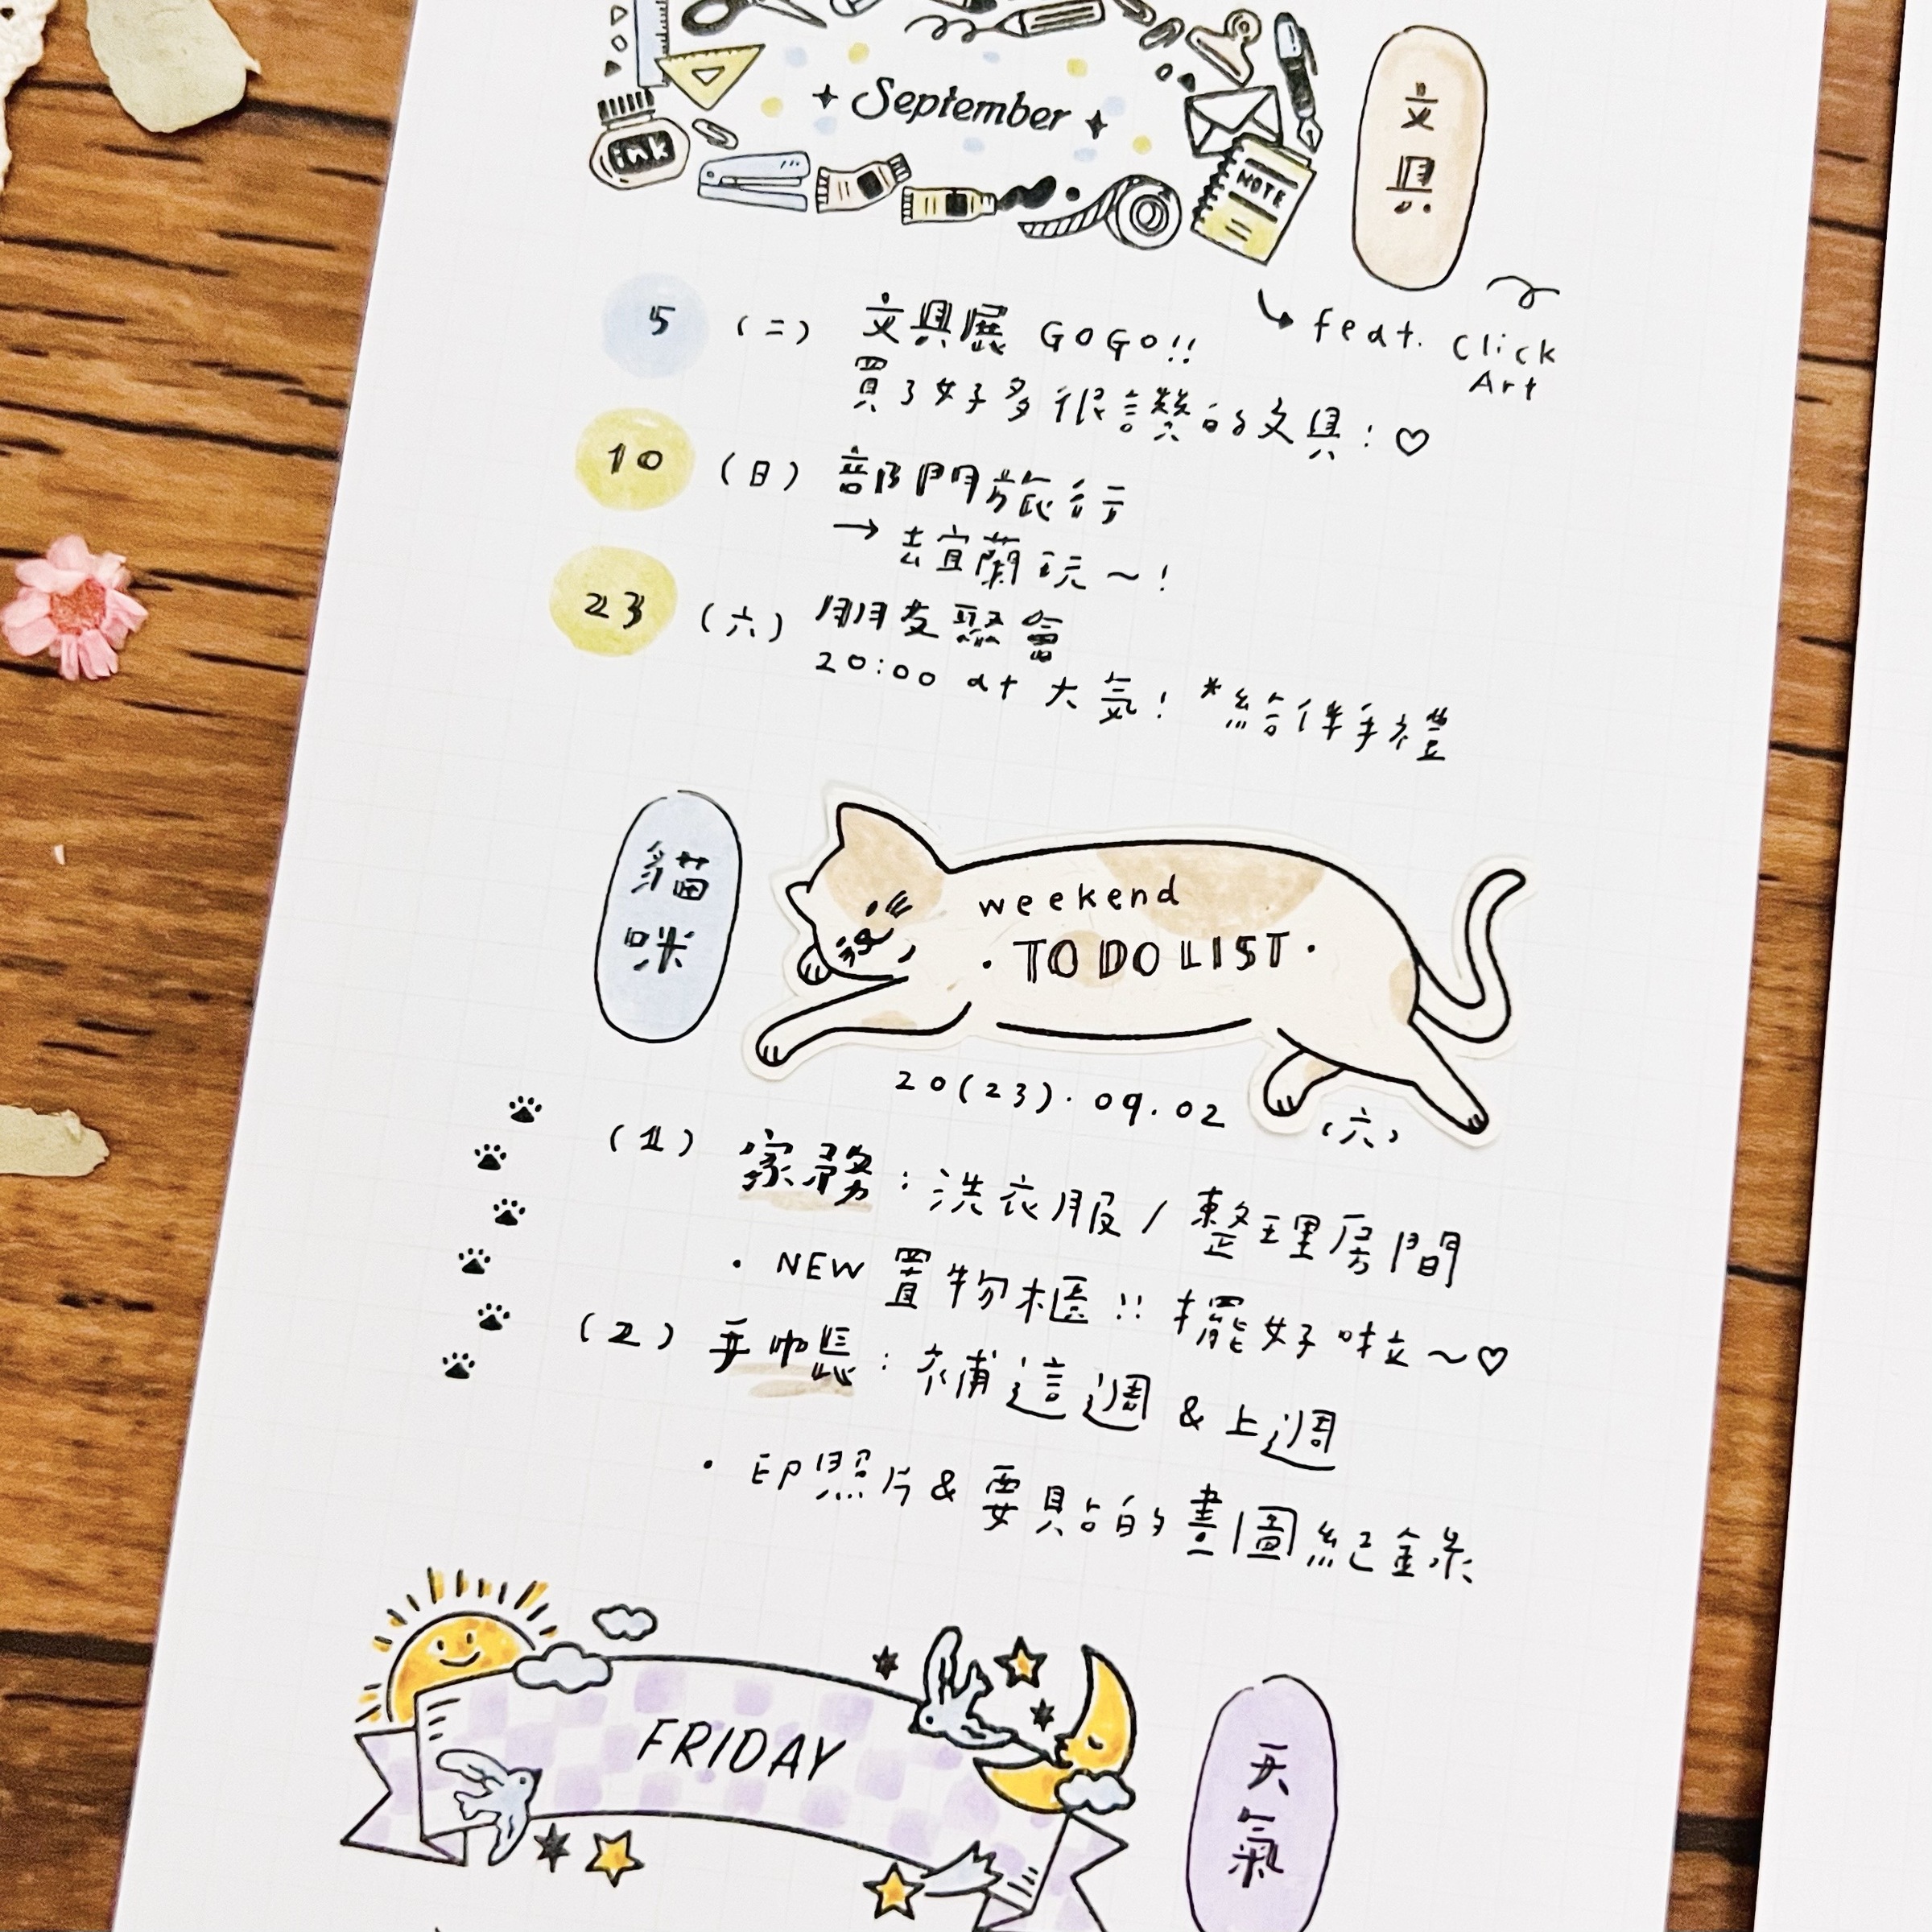 September
ink
NOTE
文具
feat. Click
Art
5 (二) 文具展 GOGO!!
買了好多很讚的文具!♡
10 (日) 部門旅行
→ 去宜蘭玩~!
23 (六) 朋友聚會
20:00 at 大氣! *給伴手禮
貓咪
weekend
・TO DO LIST・
20(23).09.02 (六)
(1) 家務:洗衣服/整理房間
・NEW 置物櫃!! 擺好啦~♡
(2) 手帳:補這週 & 上週
・印照片&要貼的畫圖紀錄
FRIDAY
天氣